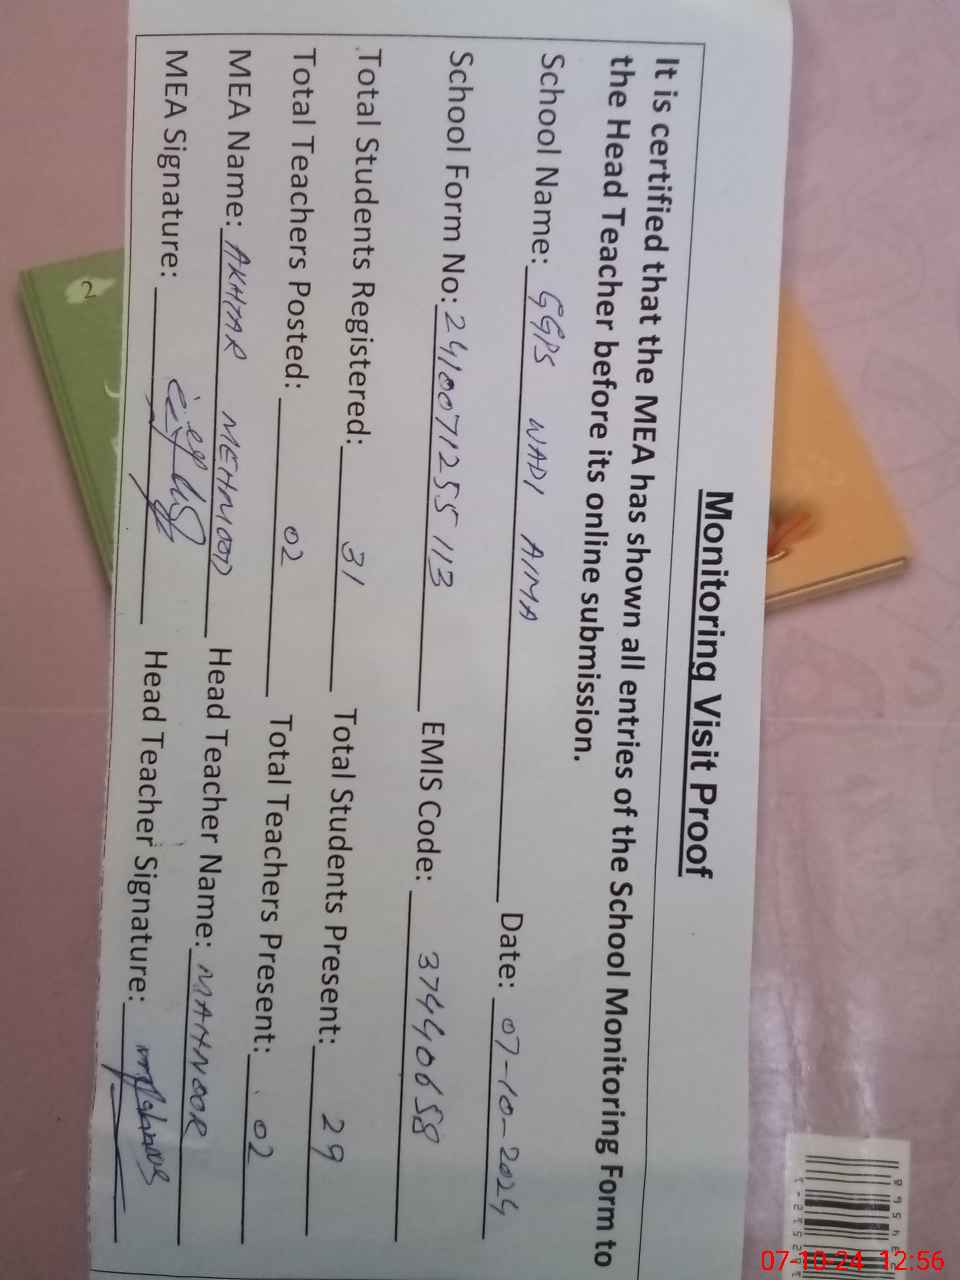 Monitoring Visit Proof
It is certified that the MEA has shown all entries of the School Monitoring Form to
the Head Teacher before its online submission.
School Name: GGPS WADI AIMA Date: 07-10-2024
School Form No: 2410071255113 EMIS Code: 37440658
Total Students Registered: 31 Total Students Present: 29
Total Teachers Posted: 02 Total Teachers Present: 02
MEA Name: AKHTAR MEHMOOD Head Teacher Name: MAHNOOR
MEA Signature: Head Teacher Signature:
07-10-24 12:56